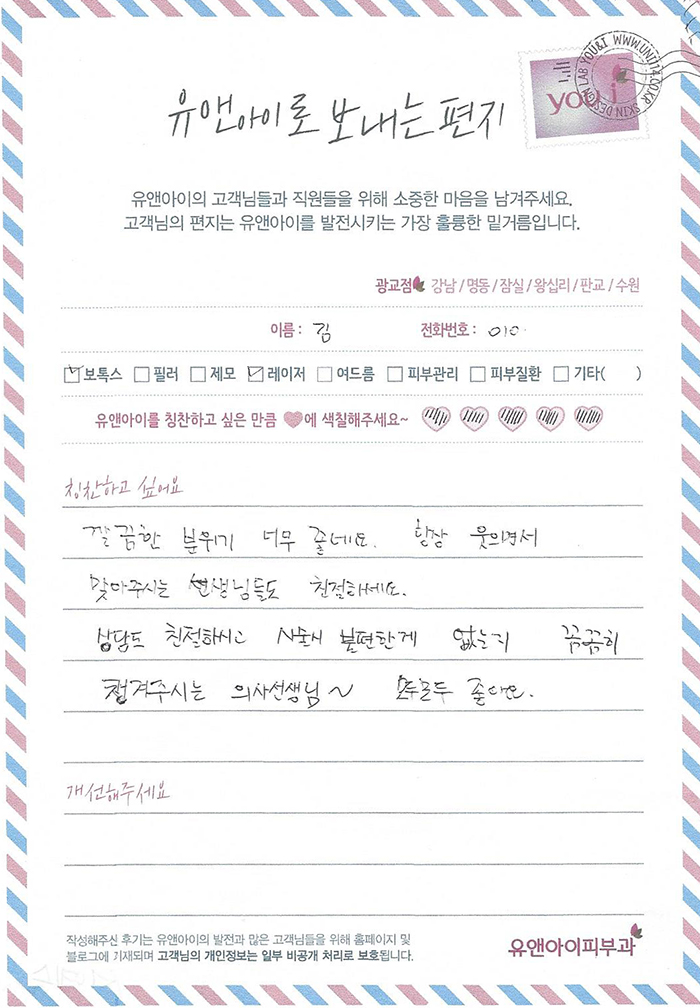 SKIN DESIGN LAB YOU&I WWW.UNI114.CO.KR
you i
유앤아이로 보내는 편지
유앤아이의 고객님들과 직원들을 위해 소중한 마음을 남겨주세요.
고객님의 편지는 유앤아이를 발전시키는 가장 훌륭한 밑거름입니다.
광교점 강남 / 명동 / 잠실 / 왕십리 / 판교 / 수원
이름 : 김 전화번호 : 010
보톡스 필러 제모 레이저 여드름 피부관리 피부질환 기타( )
유앤아이를 칭찬하고 싶은 만큼 에 색칠해주세요~
칭찬하고 싶어요
깔끔한 분위기 너무 좋네요. 항상 웃으면서
맞아주시는 선생님들도 친절하세요.
상담도 친절하시고 시술시 불편한게 없는지 꼼꼼히
챙겨주시는 의사선생님~ 모두모두 좋아요.
개선해주세요
작성해주신 후기는 유앤아이의 발전과 많은 고객님들을 위해 홈페이지 및
블로그에 기재되며 고객님의 개인정보는 일부 비공개 처리로 보호됩니다.
유앤아이피부과